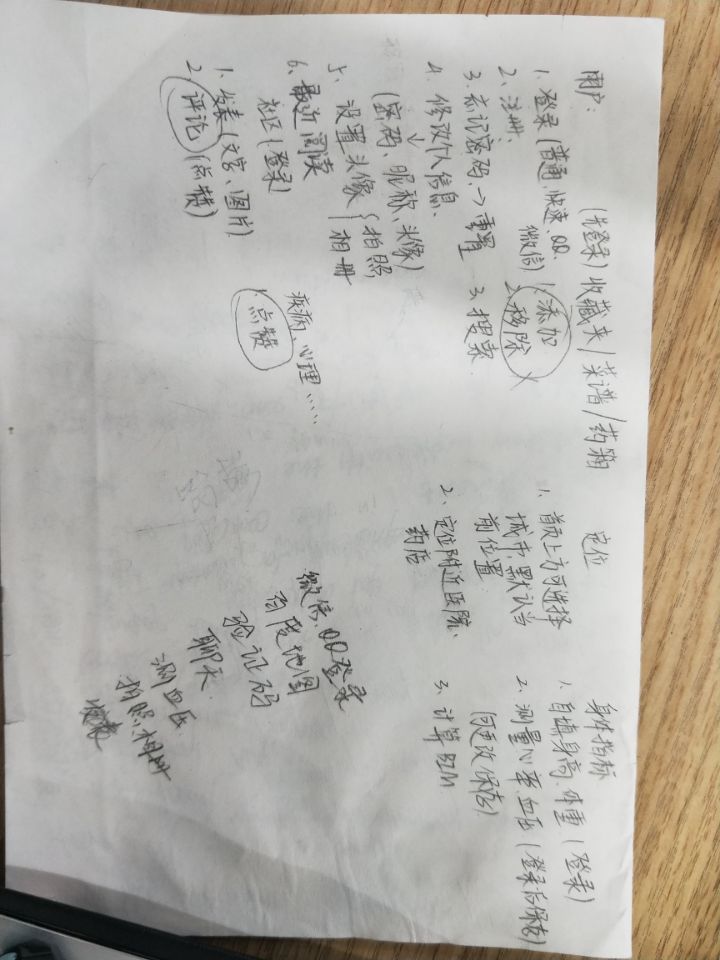 用户:
1. 登录(普通、快速、QQ、
微信)
2. 注册、
3. 忘记密码、→重置
4. 修改个人信息、
↓
(密码、昵称、头像)
5. 设置头像 { 拍照
相册
6. 最近阅读
社区(登录)
1. 发表(文字、图片)
2. 评论(点赞)
(先登录)收藏夹/菜谱/药箱
1. 添加
2. 移除
3. 搜索
疾病、心理……
1. 点赞
定位
1. 首页上方可选择
城市、默认当
前位置
2. 定位附近医院、
药店
身体指标
1. 自填身高、体重(登录)
2. 测量心率、血压(登录后保存)
(可更改、保存)
3. 计算BIM
微信、QQ登录
百度地图
验证码
聊天
测血压
拍照、相册